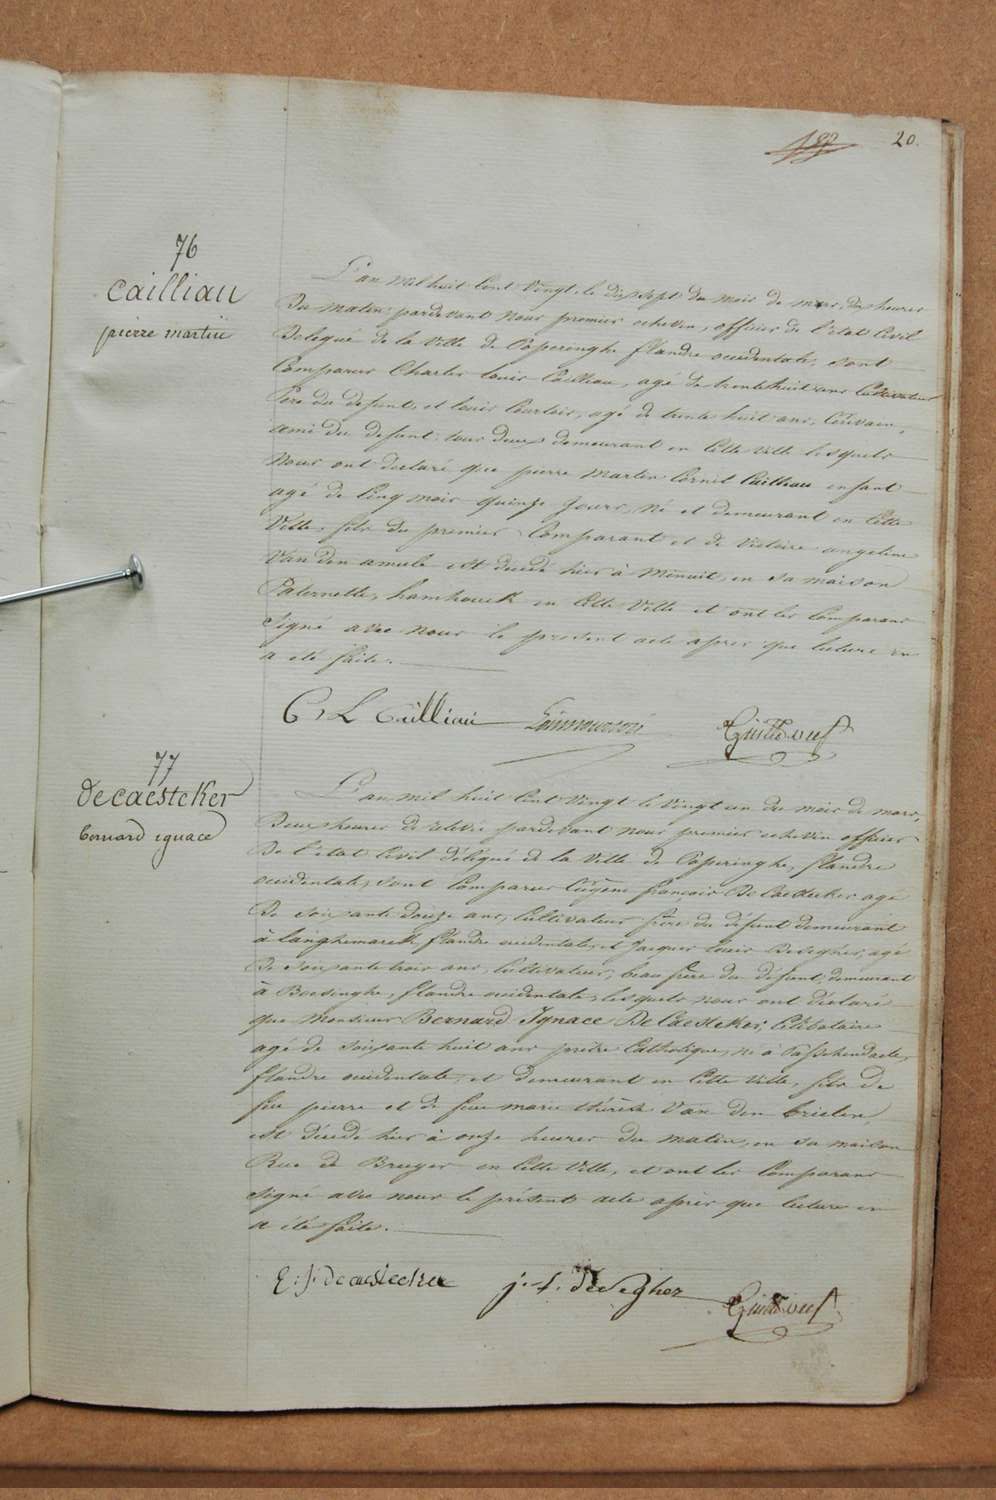 20.
76
Cailliau
pierre martin
L'an mil huit cent vingt, le dix sept du mois de mars, dix heures
du matin; pardevant nous premier echevin, officier de l'état Civil
Delegué de la ville de Poperinghe flandre occidentale, sont
Comparus Charles louis Cailliau, agé de trente huit ans Cultivateur
Pere du defunt, et louis Courtois, agé de trente huit ans, Ecrivain,
ami du defunt; tous deux demeurant en Cette ville lesquels
Nous ont declaré que pierre martin Cornil Cailliau enfant
agé de Cinq mois quinze Jours, Né et demeurant en Cette
Ville, fils du premier Comparant et de Victoire angeline
Van den amele est decedé hier à Minuit, en sa maison
Paternelle, hamhouck en Cette Ville et ont les Comparans
signé avec Nous le present acte apres que lecture en
a été faite.
C L Cailliau
77
decaesteker
bernard ignace
L'an mil huit Cent Vingt le vingt un du mois de mars,
Deux heures de relevée pardevant nous premier echevin officier
de l'état Civil délégué de la ville de Poperinghe, flandre
occidentale, sont Comparus Eugene françois De Caesteker agé
de soixante douze ans, Cultivateur frère du défunt demeurant
à langhemarck flandre occidentale, et Jacques louis Deseghers, agé
de soixante trois ans, Cultivateur, beau frère du défunt, demeurant
à Boesinghe, flandre occidentale, lesquels nous ont déclaré
que Monsieur Bernard Ignace De Caesteker, Célibataire
agé de soixante huit ans prêtre Catholique, né à Passchendaele,
flandre occidentale, et demeurant en Cette Ville, fils de
feu pierre et de feue marie thérèse Van den brielen,
est décédé hier à onze heures du matin, en sa maison
Rue de Bruges en Cette Ville, et ont les Comparans
signé avec nous le présent acte après que lecture en
a été faite.
E: f: decaestecker j. L. deSegher